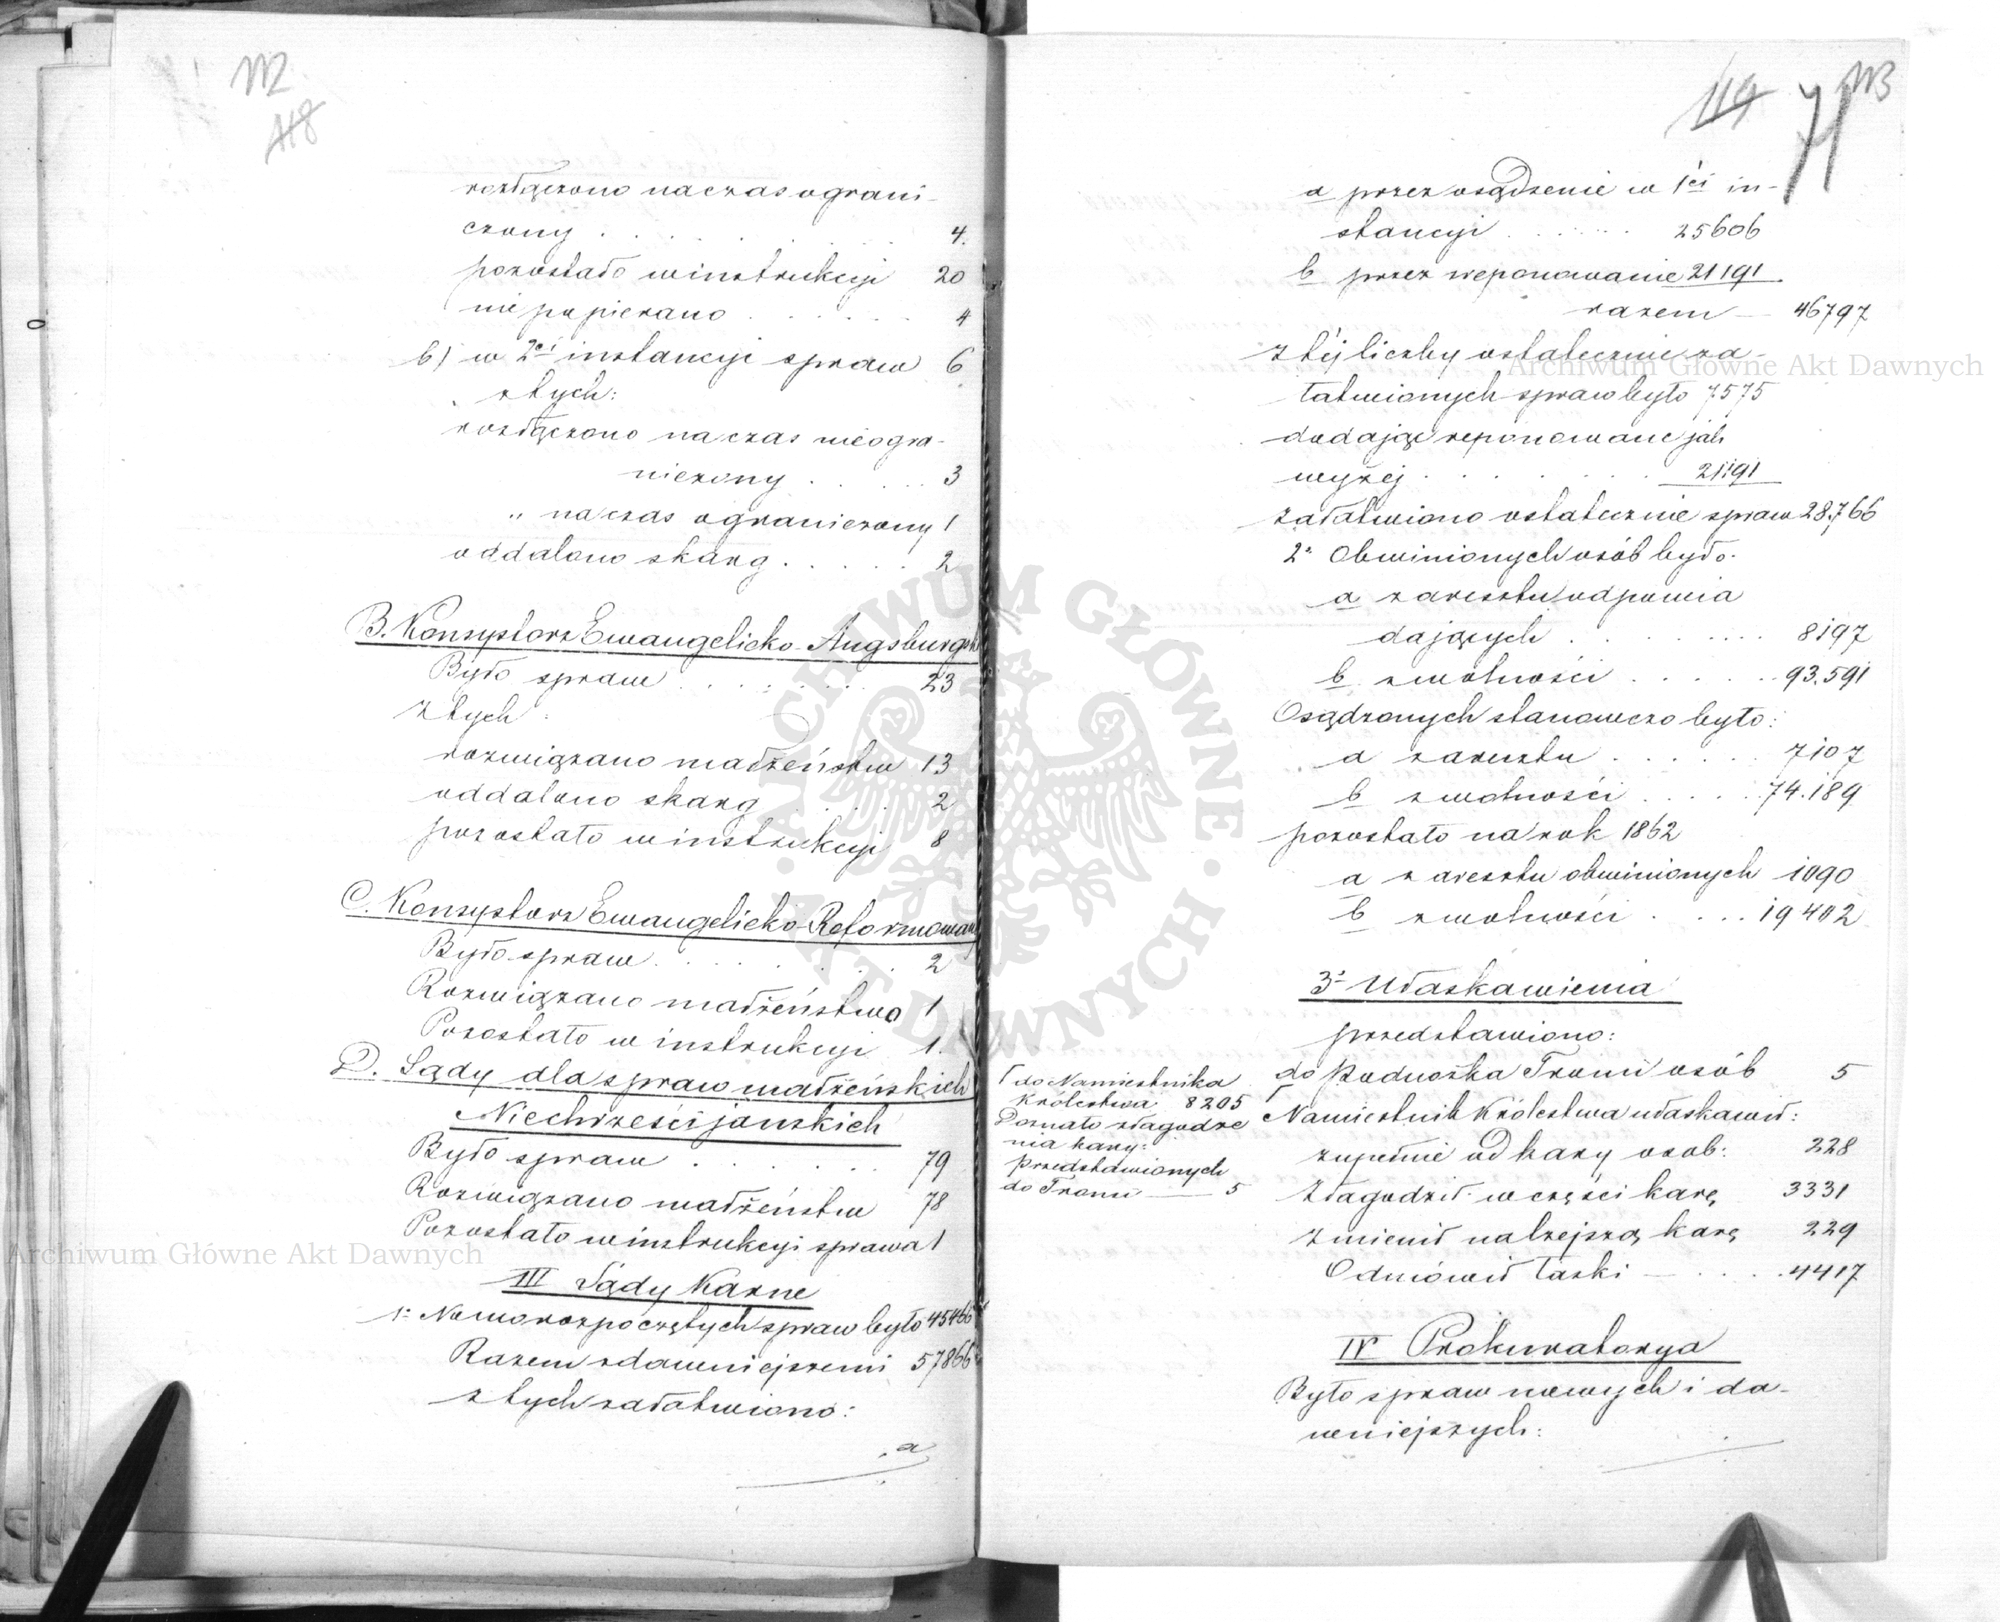 112
118
rozłączono na czas ograni-
czony . . . . . . . 4.
pozostało w instrukcyi 20
niepopierano . . . . . 4
b) w 2ei instancyi spraw 6
z tych:
rozłączono na czas nieogra-
niczony . . . . . 3
„ na czas ograniczony 1
oddalono skarg . . . . . 2
B. Konsystorz Ewangelicko-Augsburgski
Było spraw . . . . . . . 23
z tych:
rozwiązano małżeństw 13
oddalono skarg . . . . 2
pozostało w instrukcyi 8
C. Konsystorz Ewangelicko-Reformowany
Było spraw . . . . . . . 2
Rozwiązano małżeństwo 1
Pozostało w instrukcyi 1.
D. Sądy dla spraw małżeńskich
Niechrześcijanskich
Było spraw . . . . . . . 79
Rozwiązano małżeństw 78
Pozostało w instrukcyi sprawa 1
III Sądy Karne
1. Nowo rozpoczętych spraw było 45466
Razem z dawniejszemi 57866
z tych załatwiono:
a
119
71
113
a przez osądzenie w 1ei in-
stancyi . . . . . 25606
b przez reponowanie 21191
razem — 46797
z téj liczby ostatecznie za-
łatwionych spraw było 7575
dodając reponowane jak
wyżej . . . . . . . 21191
załatwiono ostatecznie spraw 28.766
2. Obwinionych osób było.
a z aresztu odpowia
dających . . . . . . . 8197
b z wolności . . . . . 93.591
Osądzonych stanowczo było:
a z aresztu . . . . . . 7107
b z wolności . . . . . 74.189
pozostało na rok 1862
a z aresztu obwinionych 1090
b z wolności . . . . . 19402
3. Ułaskawienia
przedstawiono:
do Podnóżka Tronu osób 5
do Namiestnika
Królestwa 8205
Doznało złagodze
nia kary:
przedstawionych
do Tronu — 5
Namiestnik Królestwa ułaskawił:
zupełnie od kary osob: 228
złagodził w części karę 3331
zmienił na lżejszą karę 229
Odmówił łaski — . . . . 4417
IV Prokuratorya
Było spraw nowych i da-
wniejszych:
Archiwum Główne Akt Dawnych
Archiwum Główne Akt Dawnych
ARCHIWUM GŁÓWNE · AKT DAWNYCH ·